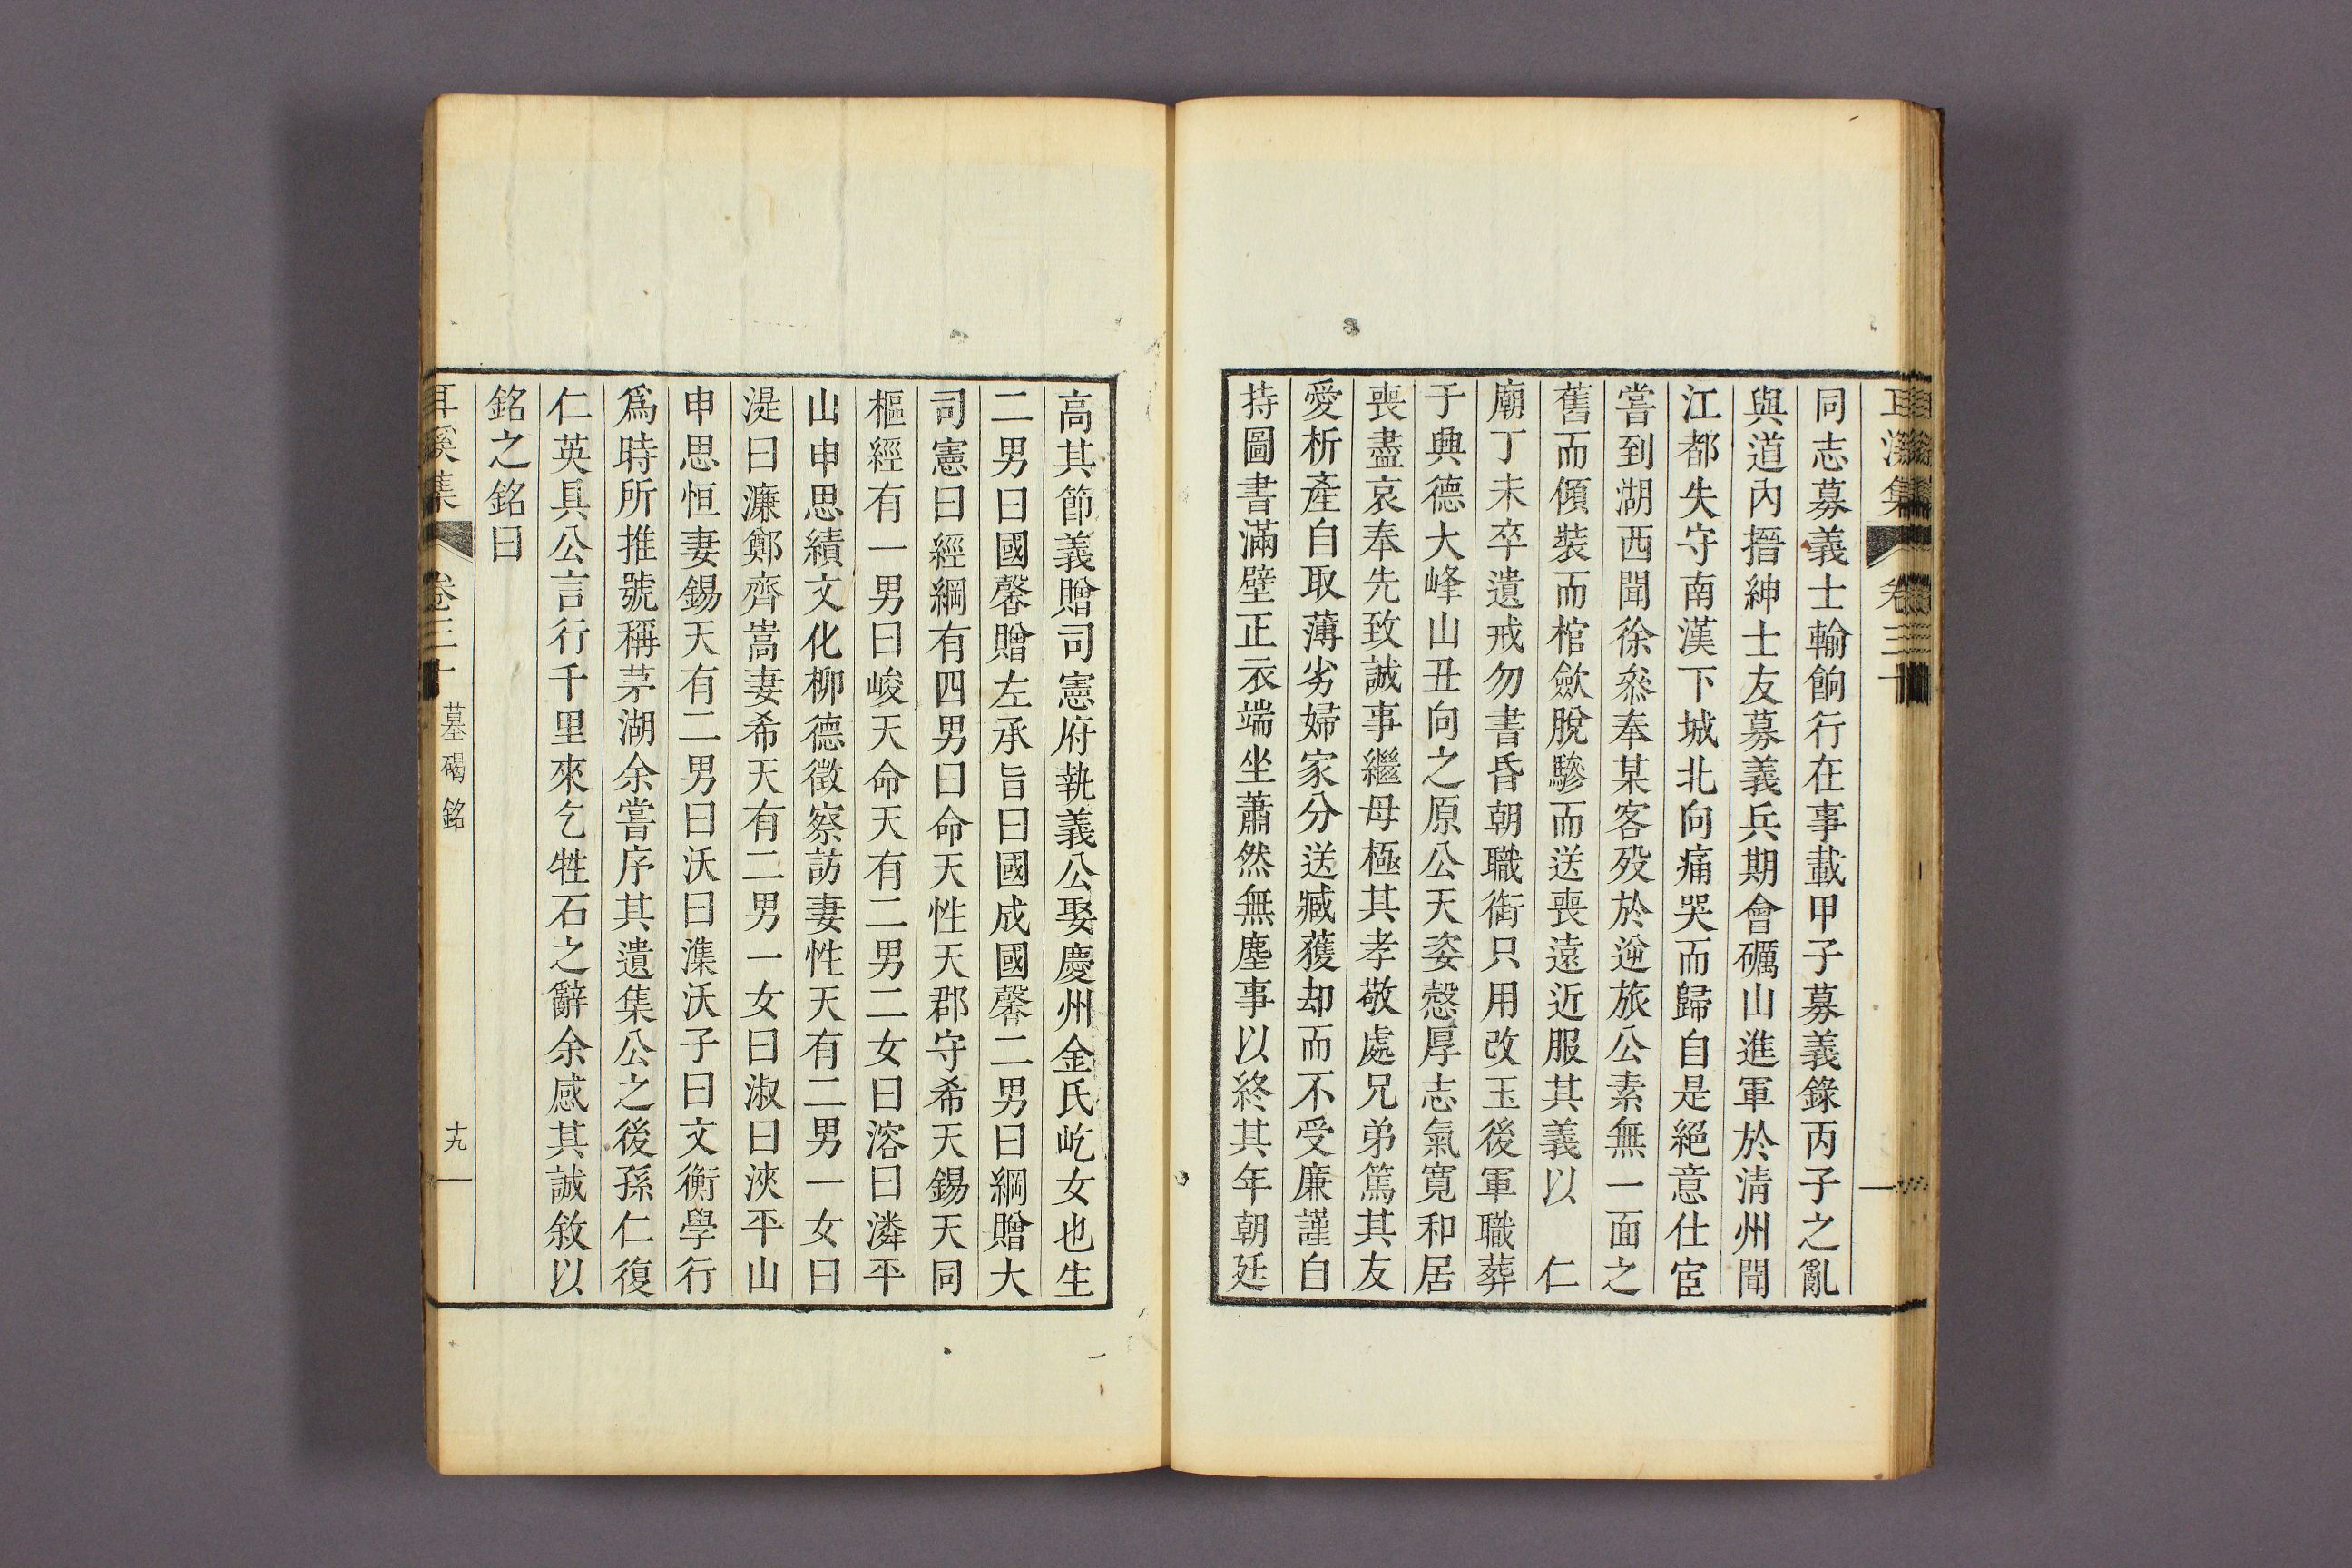 同志募義士輸餉行在事載甲子募義錄丙子之亂
與道內搢紳士友募義兵期會礪山進軍於淸州聞
江都失守南漢下城北向痛哭而歸自是絕意仕宦
嘗到湖西聞徐叅奉某客歿於逆旅公素無一面之
舊而傾裝而棺斂脫驂而送喪遠近服其義以 仁
廟丁未卒遺戒勿書昏朝職銜只用改玉後軍職葬
于興德大峰山丑向之原公天姿慤厚志氣寬和居
喪盡哀奉先致誠事繼母極其孝敬處兄弟篤其友
愛析產自取薄劣婦家分送臧獲却而不受廉謹自
持圖書滿壁正衣端坐蕭然無塵事以終其年朝廷
高其節義贈司憲府執義公娶慶州金氏屹女也生
二男曰國馨贈左承旨曰國成國馨二男曰綱贈大
司憲曰經綱有四男曰命天性天郡守希天錫天同
樞經有一男曰峻天命天有二男二女曰溶曰潾平
山申思績文化柳德徵察訪妻性天有二男一女曰
湜曰濂鄭齊嵩妻希天有二男一女曰淑曰浹平山
申思恒妻錫天有二男曰沃曰潗沃子曰文衡學行
爲時所推號稱茅湖余嘗序其遺集公之後孫仁復
仁英具公言行千里來乞牲石之辭余感其誠敘以
銘之銘曰
耳溪集 卷三十 墓碣銘 十九